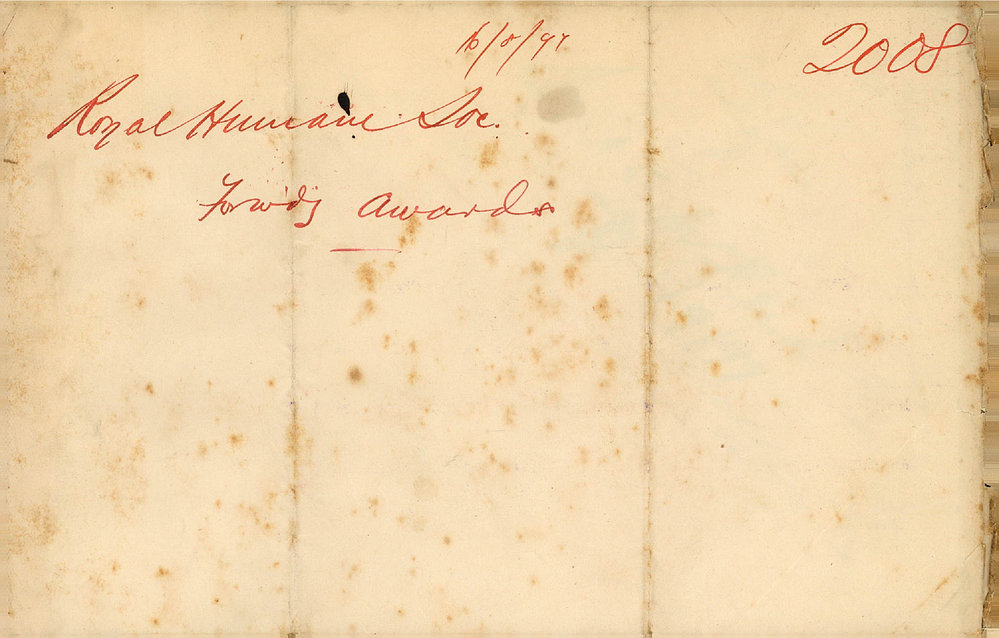 16/8/97
2008
Royal Humane Soc.
Forwdg Awards